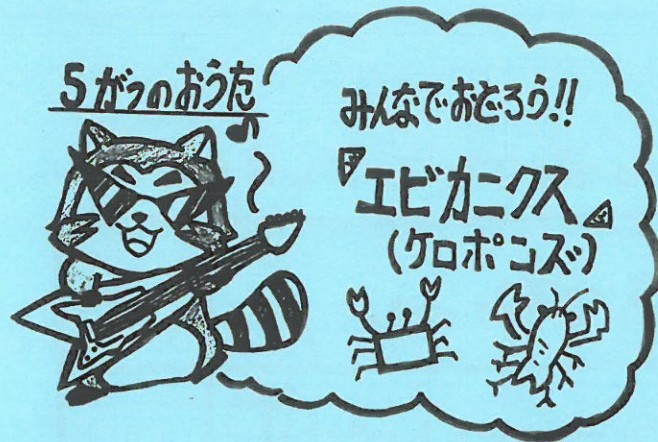 5がつのおうた
みんなでおどろう!!
『エビカニクス』
(ケロポンズ)